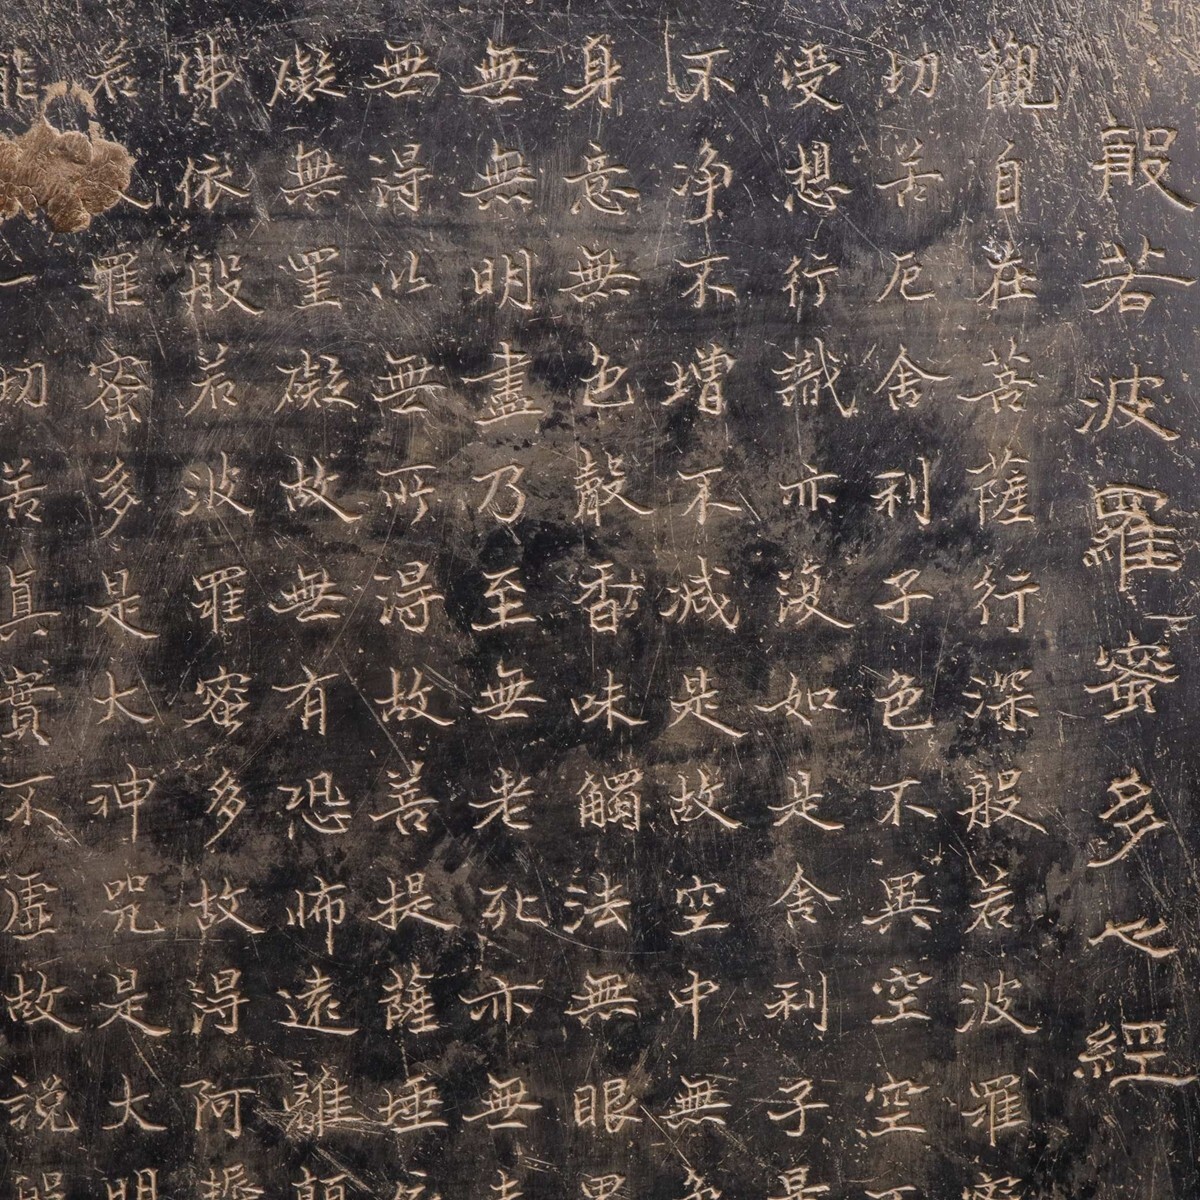 般若波羅蜜多心經
觀自在菩薩行深般若波羅蜜
切苦厄舍利子色不異空空不
受想行識亦復如是舍利子是
不净不增不减是故空中無色
身意無色聲香味觸法無眼界
無無明盡乃至無老死亦無老
無得以無所得故菩提薩埵依
礙無罣礙故無有恐怖遠離顛
佛依般若波羅蜜多故得阿耨
若羅蜜多是大神咒是大明
能一切苦真實不虛故說般